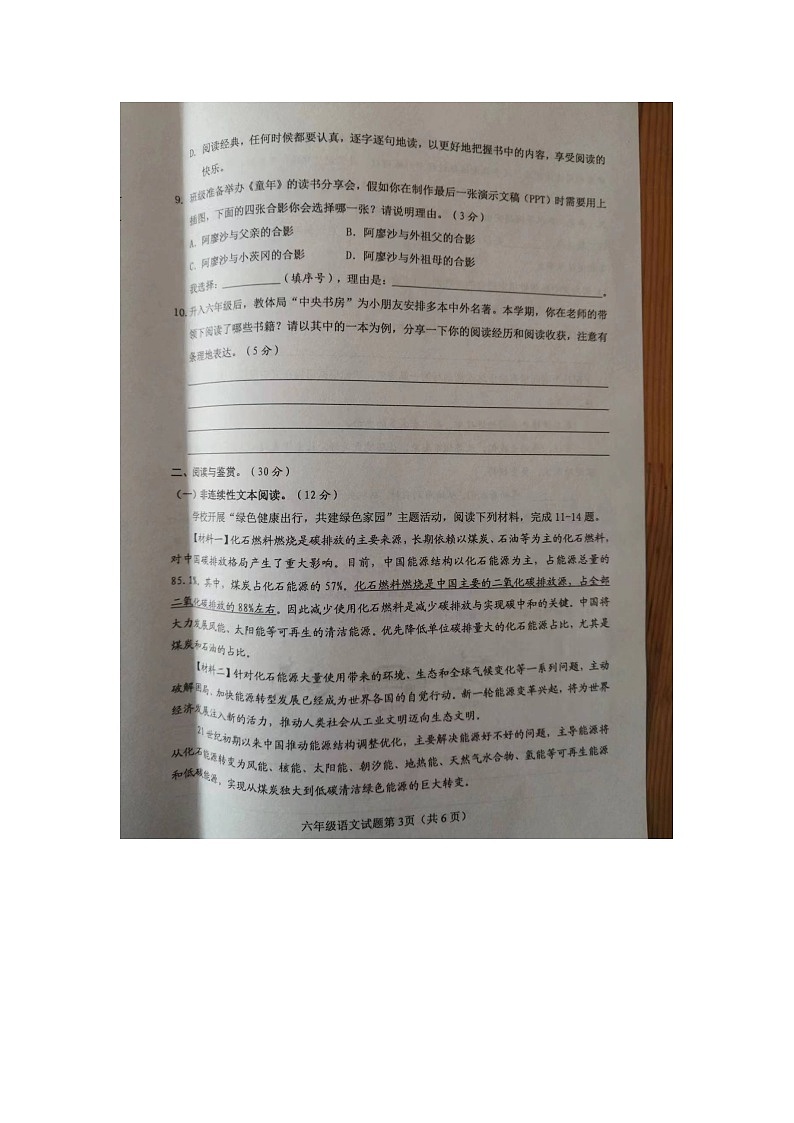 D. 阅读经典，任何时候都要认真，逐字逐句地读，以更好地把握书中的内容，享受阅读的
快乐。
9. 班级准备举办《童年》的读书分享会，假如你在制作最后一张演示文稿（PPT）时需要用上
插图，下面的四张合影你会选择哪一张？请说明理由。（3分）
A. 阿廖沙与父亲的合影 B. 阿廖沙与外祖父的合影
C. 阿廖沙与小茨冈的合影 D. 阿廖沙与外祖母的合影
我选择：__________（填序号），理由是：______________________________。
10. 升入六年级后，教体局“中央书房”为小朋友安排多本中外名著。本学期，你在老师的带
领下阅读了哪些书籍？请以其中的一本为例，分享一下你的阅读经历和阅读收获，注意有
条理地表达。（5分）
二、阅读与鉴赏。（30分）
（一）非连续性文本阅读。（12分）
学校开展“绿色健康出行，共建绿色家园”主题活动，阅读下列材料，完成11-14题。
【材料一】化石燃料燃烧是碳排放的主要来源，长期依赖以煤炭、石油等为主的化石燃料，
对中国碳排放格局产生了重大影响。目前，中国能源结构以化石能源为主，占能源总量的
85.1%，其中，煤炭占化石能源的57%。化石燃料燃烧是中国主要的二氧化碳排放源，占全部
二氧化碳排放的88%左右。因此减少使用化石燃料是减少碳排放与实现碳中和的关键。中国将
大力发展风能、太阳能等可再生的清洁能源。优先降低单位碳排量大的化石能源占比，尤其是
煤炭和石油的占比。
【材料二】针对化石能源大量使用带来的环境、生态和全球气候变化等一系列问题，主动
破解困局，加快能源转型发展已经成为世界各国的自觉行动。新一轮能源变革兴起，将为世界
经济发展注入新的活力，推动人类社会从工业文明迈向生态文明。
21世纪初期以来中国推动能源结构调整优化，主要解决能源好不好的问题，主导能源将
从化石能源转变为风能、核能、太阳能、朝汐能、地热能、天然气水合物、氢能等可再生能源
和低碳能源，实现从煤炭独大到低碳清洁绿色能源的巨大转变。
六年级语文试题第3页（共6页）